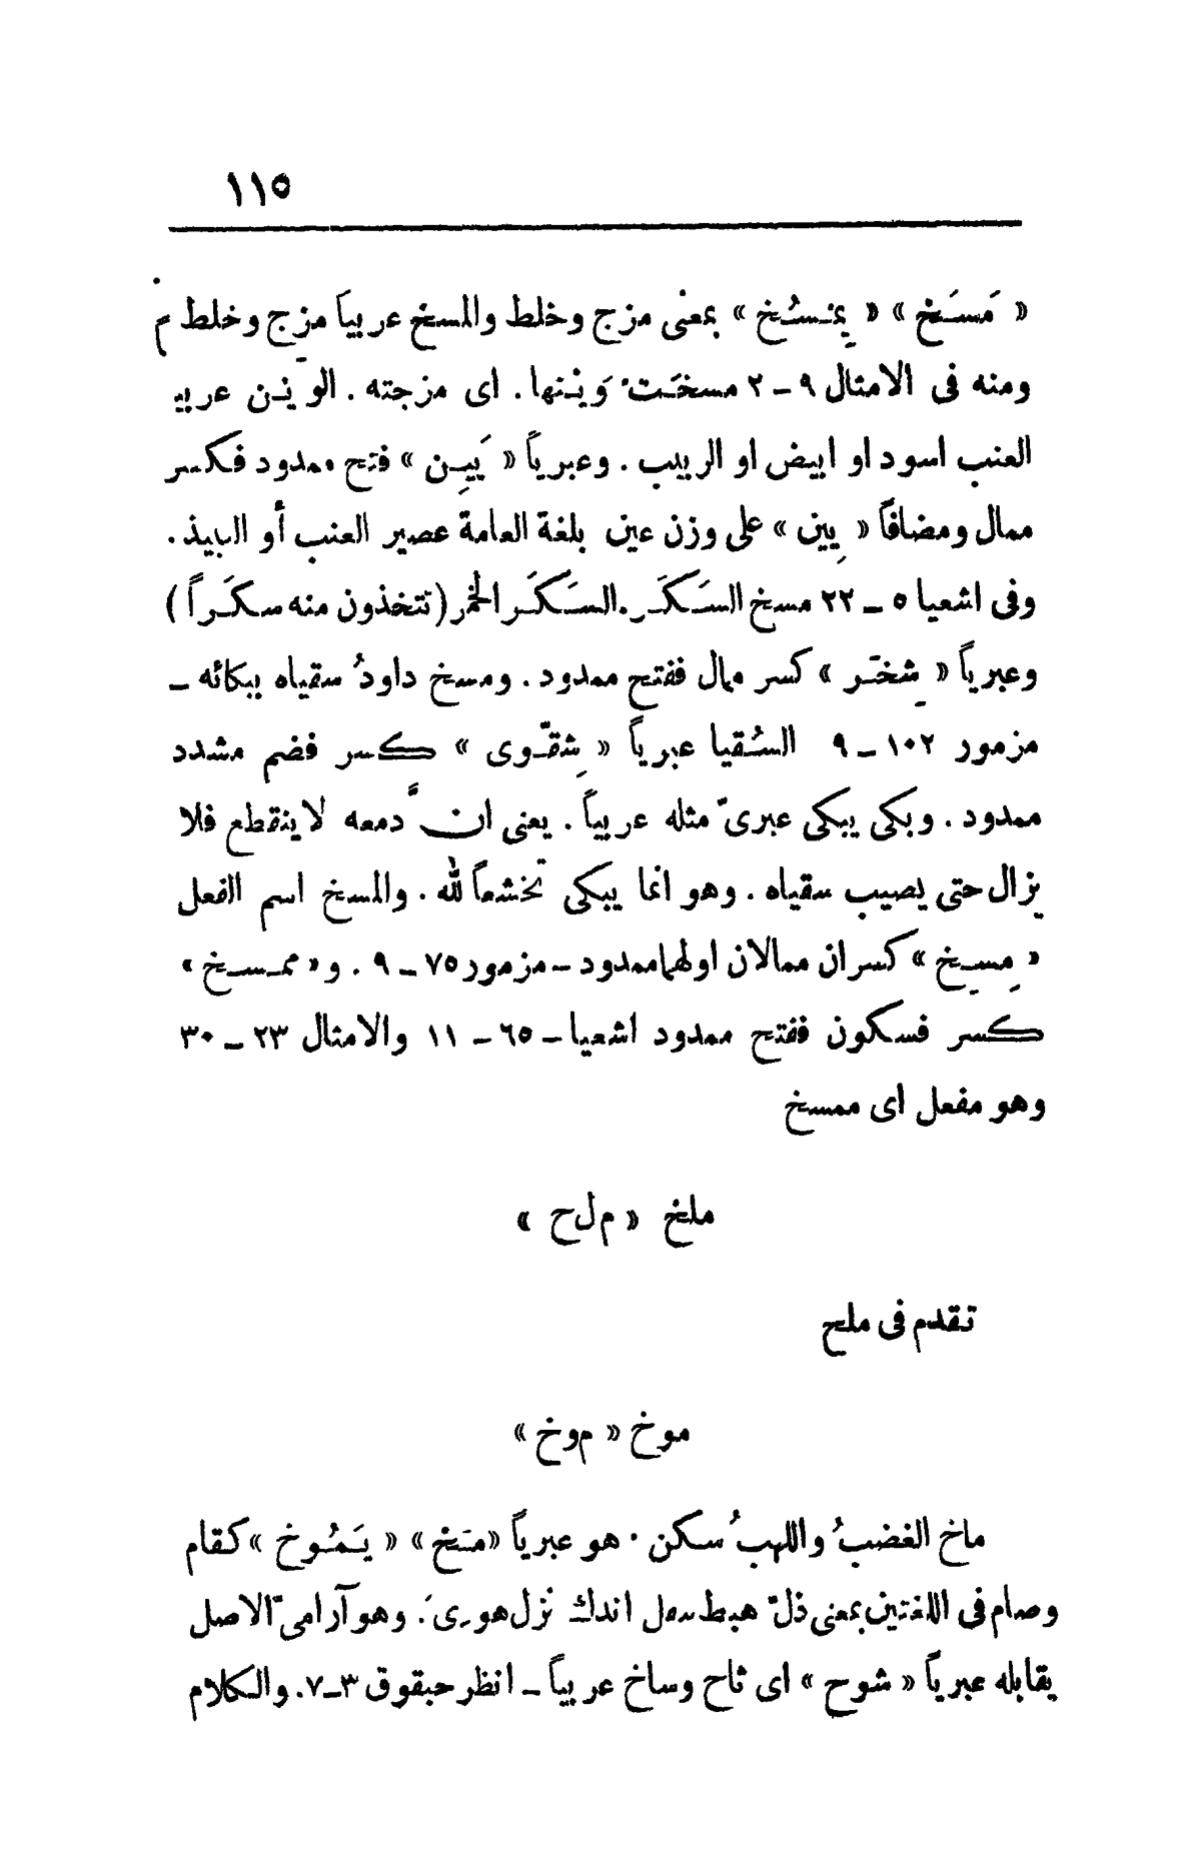 ١١٥
« مَسَخْ » « يِمْسُخ » بمعنى مزج وخلط والمسخ عربياً مزج وخلط
ومنه فى الامثال ٩ – ٢ مسخَت وَيْنها . اى مزجته . الوَيْن عربيا
العنب اسود او ابيض او الزبيب . وعبرياً « يَيِن » فتح ممدود فكسر
ممال ومضافاً « يِين » على وزن عين بلغة العامة عصير العنب أو النبيذ .
وفى اشعيا ٥ – ٢٢ مسخ السَكَر . السَكَر الخمر ( تتخذون منه سكَراً )
وعبرياً « شِخَر » كسر ممال ففتح ممدود . ومسخ داودُ سقياه ببكائه –
مزمور ١٠٢ – ٩ السُقيا عبرياً « شِقّوى » كسر فضم مشدد
ممدود . وبكى يبكى عبرىّ مثله عربياً . يعنى انّ دمعه لاينقطع فلا
يزال حتى يصيب سقياه . وهو انما يبكى تخشعاً لله . والمسخ اسم الفعل
« مِسِخ » كسران ممالان اولهما ممدود – مزمور ٧٥ – ٩ . و « ممسخ »
كسر فسكون ففتح ممدود اشعيا – ٦٥ – ١١ والامثال ٢٣ – ٣٠
وهو مفعل اى ممسخ
ملخ « م ل ح »
تقدم فى ملح
موخ « م و خ »
ماخ الغضبُ واللهبُ سكن . هو عبرياً « مَخْ » « يَمُوخ » كقام
وصام فى اللغتين بمعنى ذلّ هبط سهل اندك نزل هوى . وهو آرامىّ الاصل
يقابله عبرياً « شوح » اى ثاح وساخ عربياً – انظر حبقوق ٣–٧. والكلام